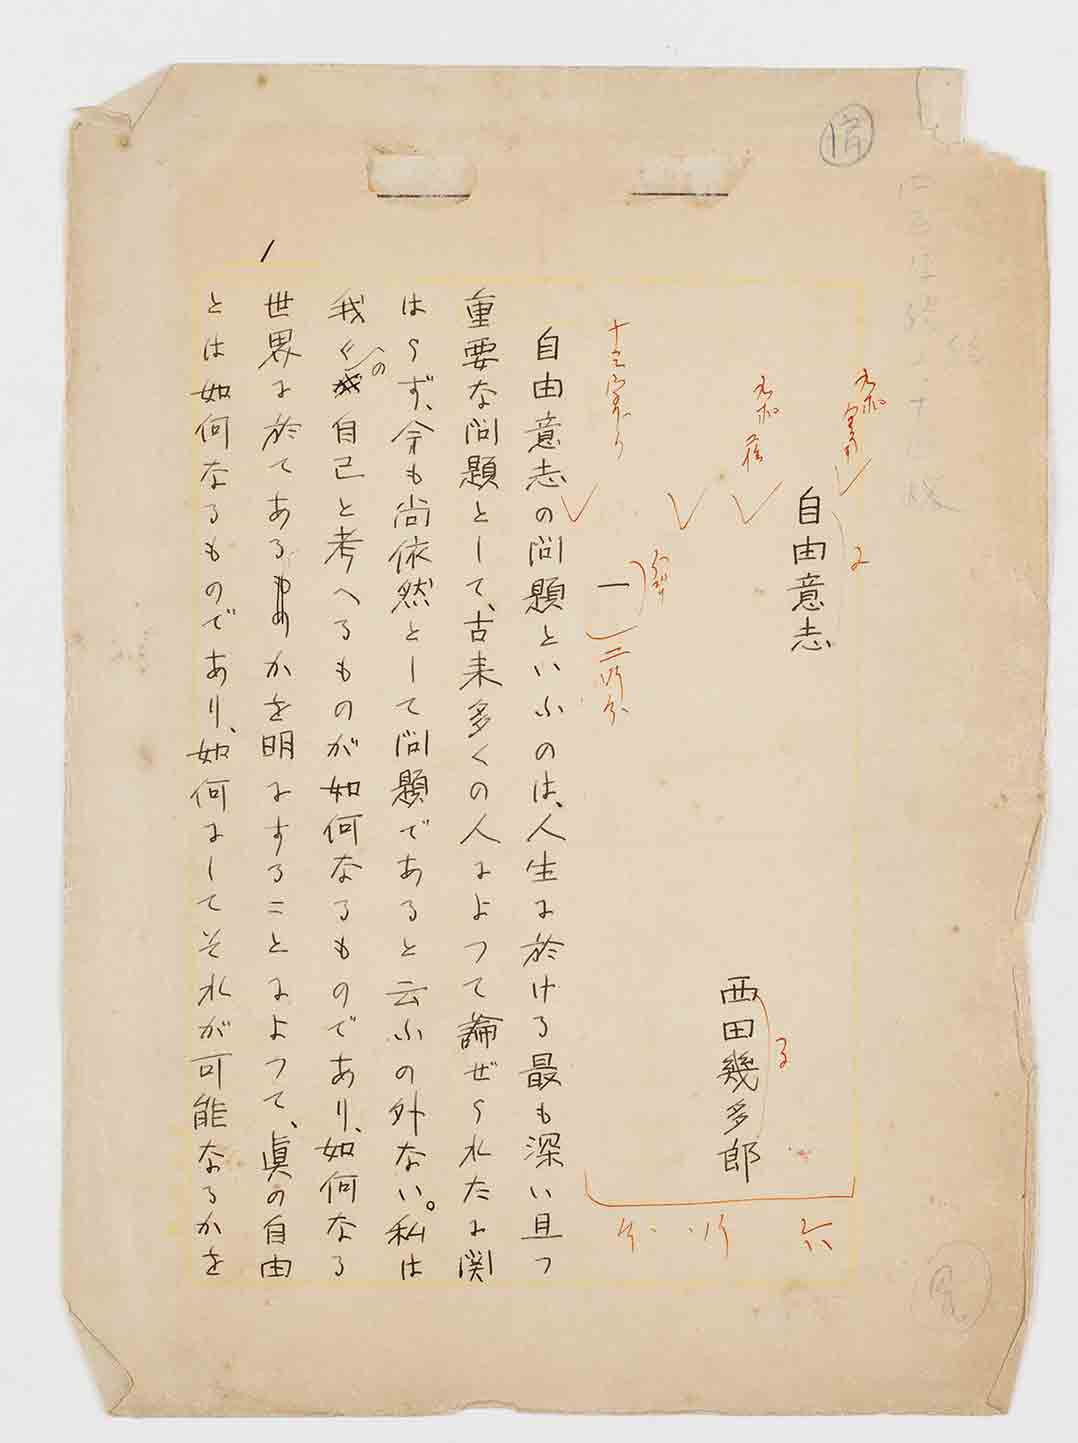 自由意志
西田幾多郎
六行分
一
二行分
自由意志の問題といふのは、人生に於ける最も深い且つ
重要な問題として、古来多くの人によつて論ぜられたに関
はらず、今も尚依然として問題であると云ふの外ない。私は
我々の自己と考へるものが如何なるものであり、如何なる
世界に於てあるかを明にすることによつて、眞の自由
とは如何なるものであり、如何にしてそれが可能なるかを
1